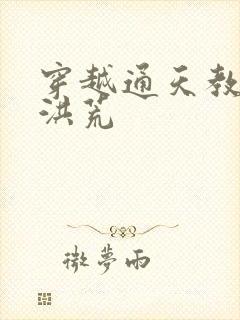 穿越通天教
洪荒
微夢雨